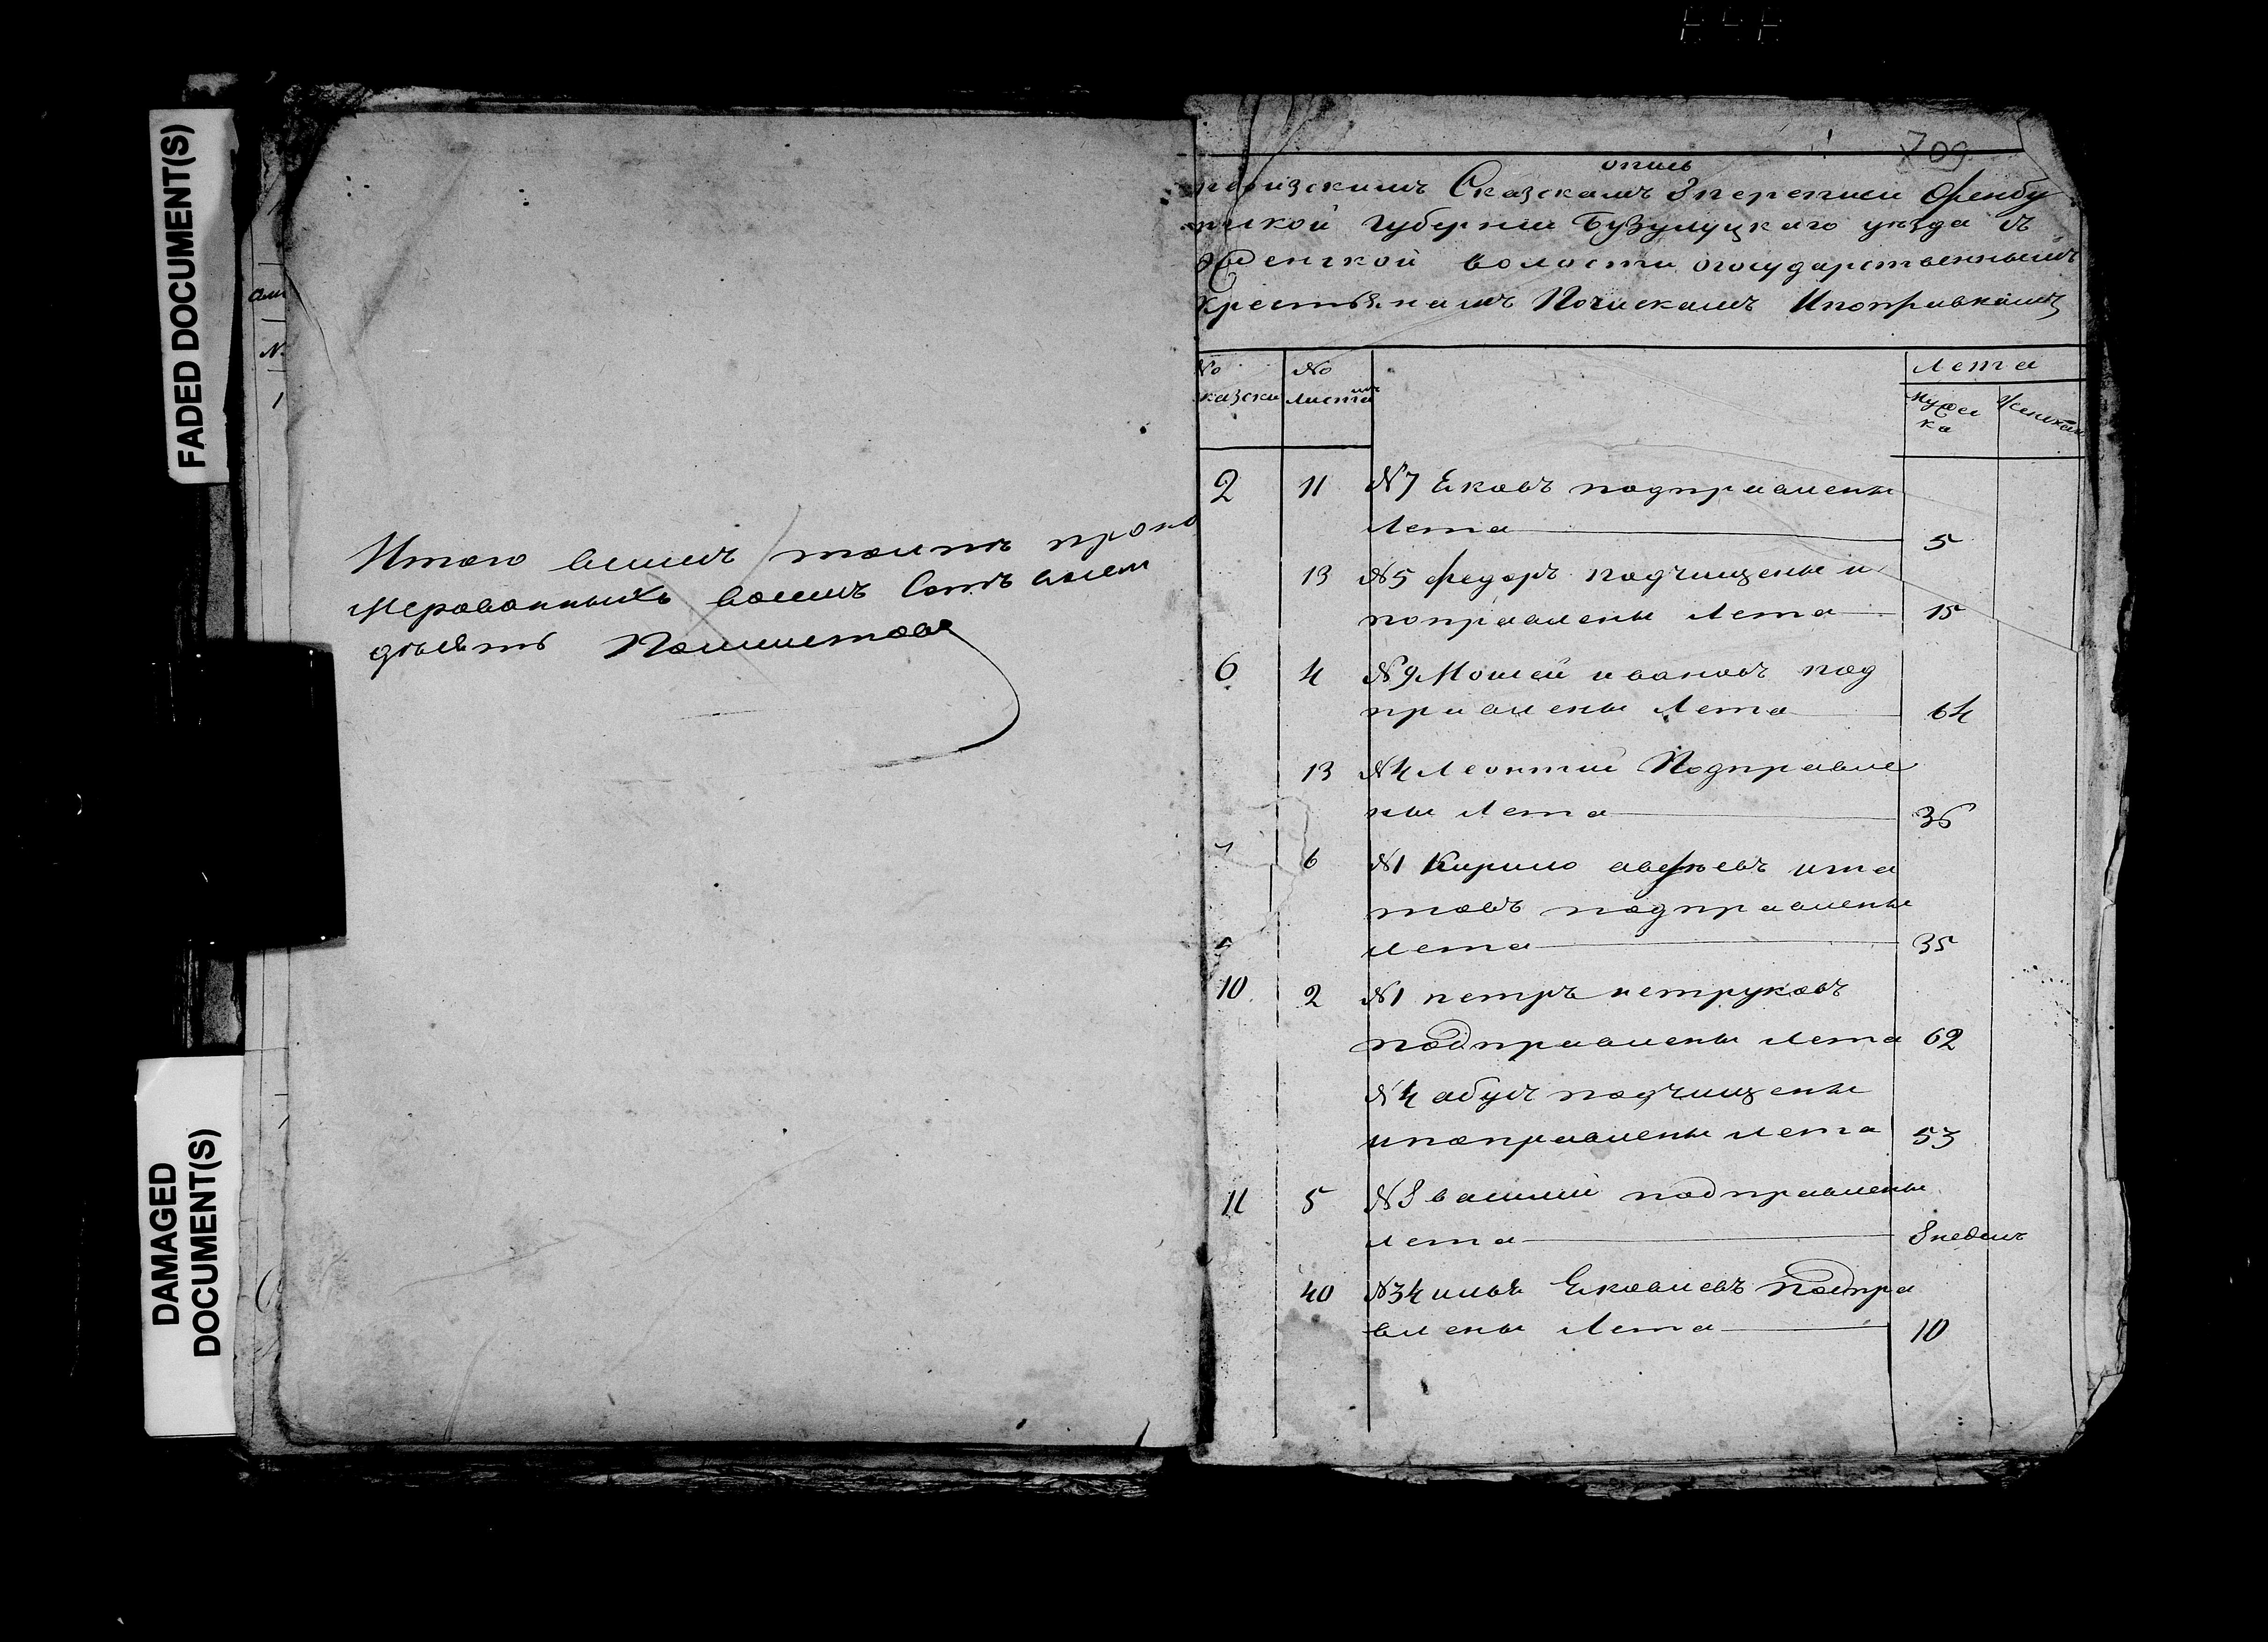 FADED DOCUMENT(S)
DAMAGED
DOCUMENT(S)
Итого всемъ томъ прону
мерованныхъ восемь Сотъ
девять
709
опись
ревизскимъ Сказскамъ 8 переписи Оренбу
ргской губернии Бузулуцкаго уезда
волости огосударственнымъ
крестьянамъ Почискамъ Ипоправкамъ
№ казски
№ листамъ
Лета
мужеска
женска
2 11 №7 Яковъ подправлены
Лета 5
13 №5 федоръ подчищены и
поправлены Лета 15
6 4 №9 Мосей ивановъ под
правлены Лета 64
13 №4 Леонтии Подправле
ны Лета 36
6 №1 Кирило
подправлены
лета 35
10 2 №1 петръ петруковъ
подправлены лета 62
№4 подчищены
ипоправлены лета 53
11 5 №8 василии подправлены
лета 8 недель
40 №34 илья Яковлевъ подпра
влены Лета 10